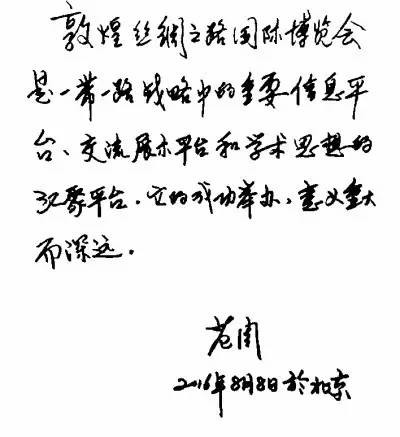 敦煌丝绸之路国际博览会
是一带一路战略中的重要信息平
台、交流展示平台和学术思想的
汇聚平台。它的成功举办，意义重大
而深远。
范周
2016年8月8日於北京